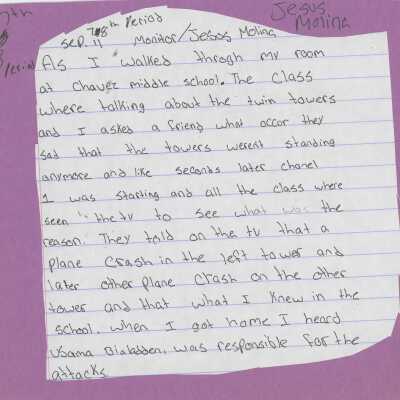 7th Period
7, 8th Period
Jesus Molina
Sep. 11 Monitor/Jesus Molina
As I walked throgh my room
at Chavez middle school. The class
where talking about the twin towers
and I asked a friend what occor they
sad that the towers werest standing
anymore and like seconds later chanel
1 was starting and all the class where
seen the tv to see what was the
reason. They told on the tv that a
plane crash in the left tower and
later other plane crash on the other
tower and that what I knew in the
school. when I got home I heard
Usama Bialadden. was responsible for the
attacks